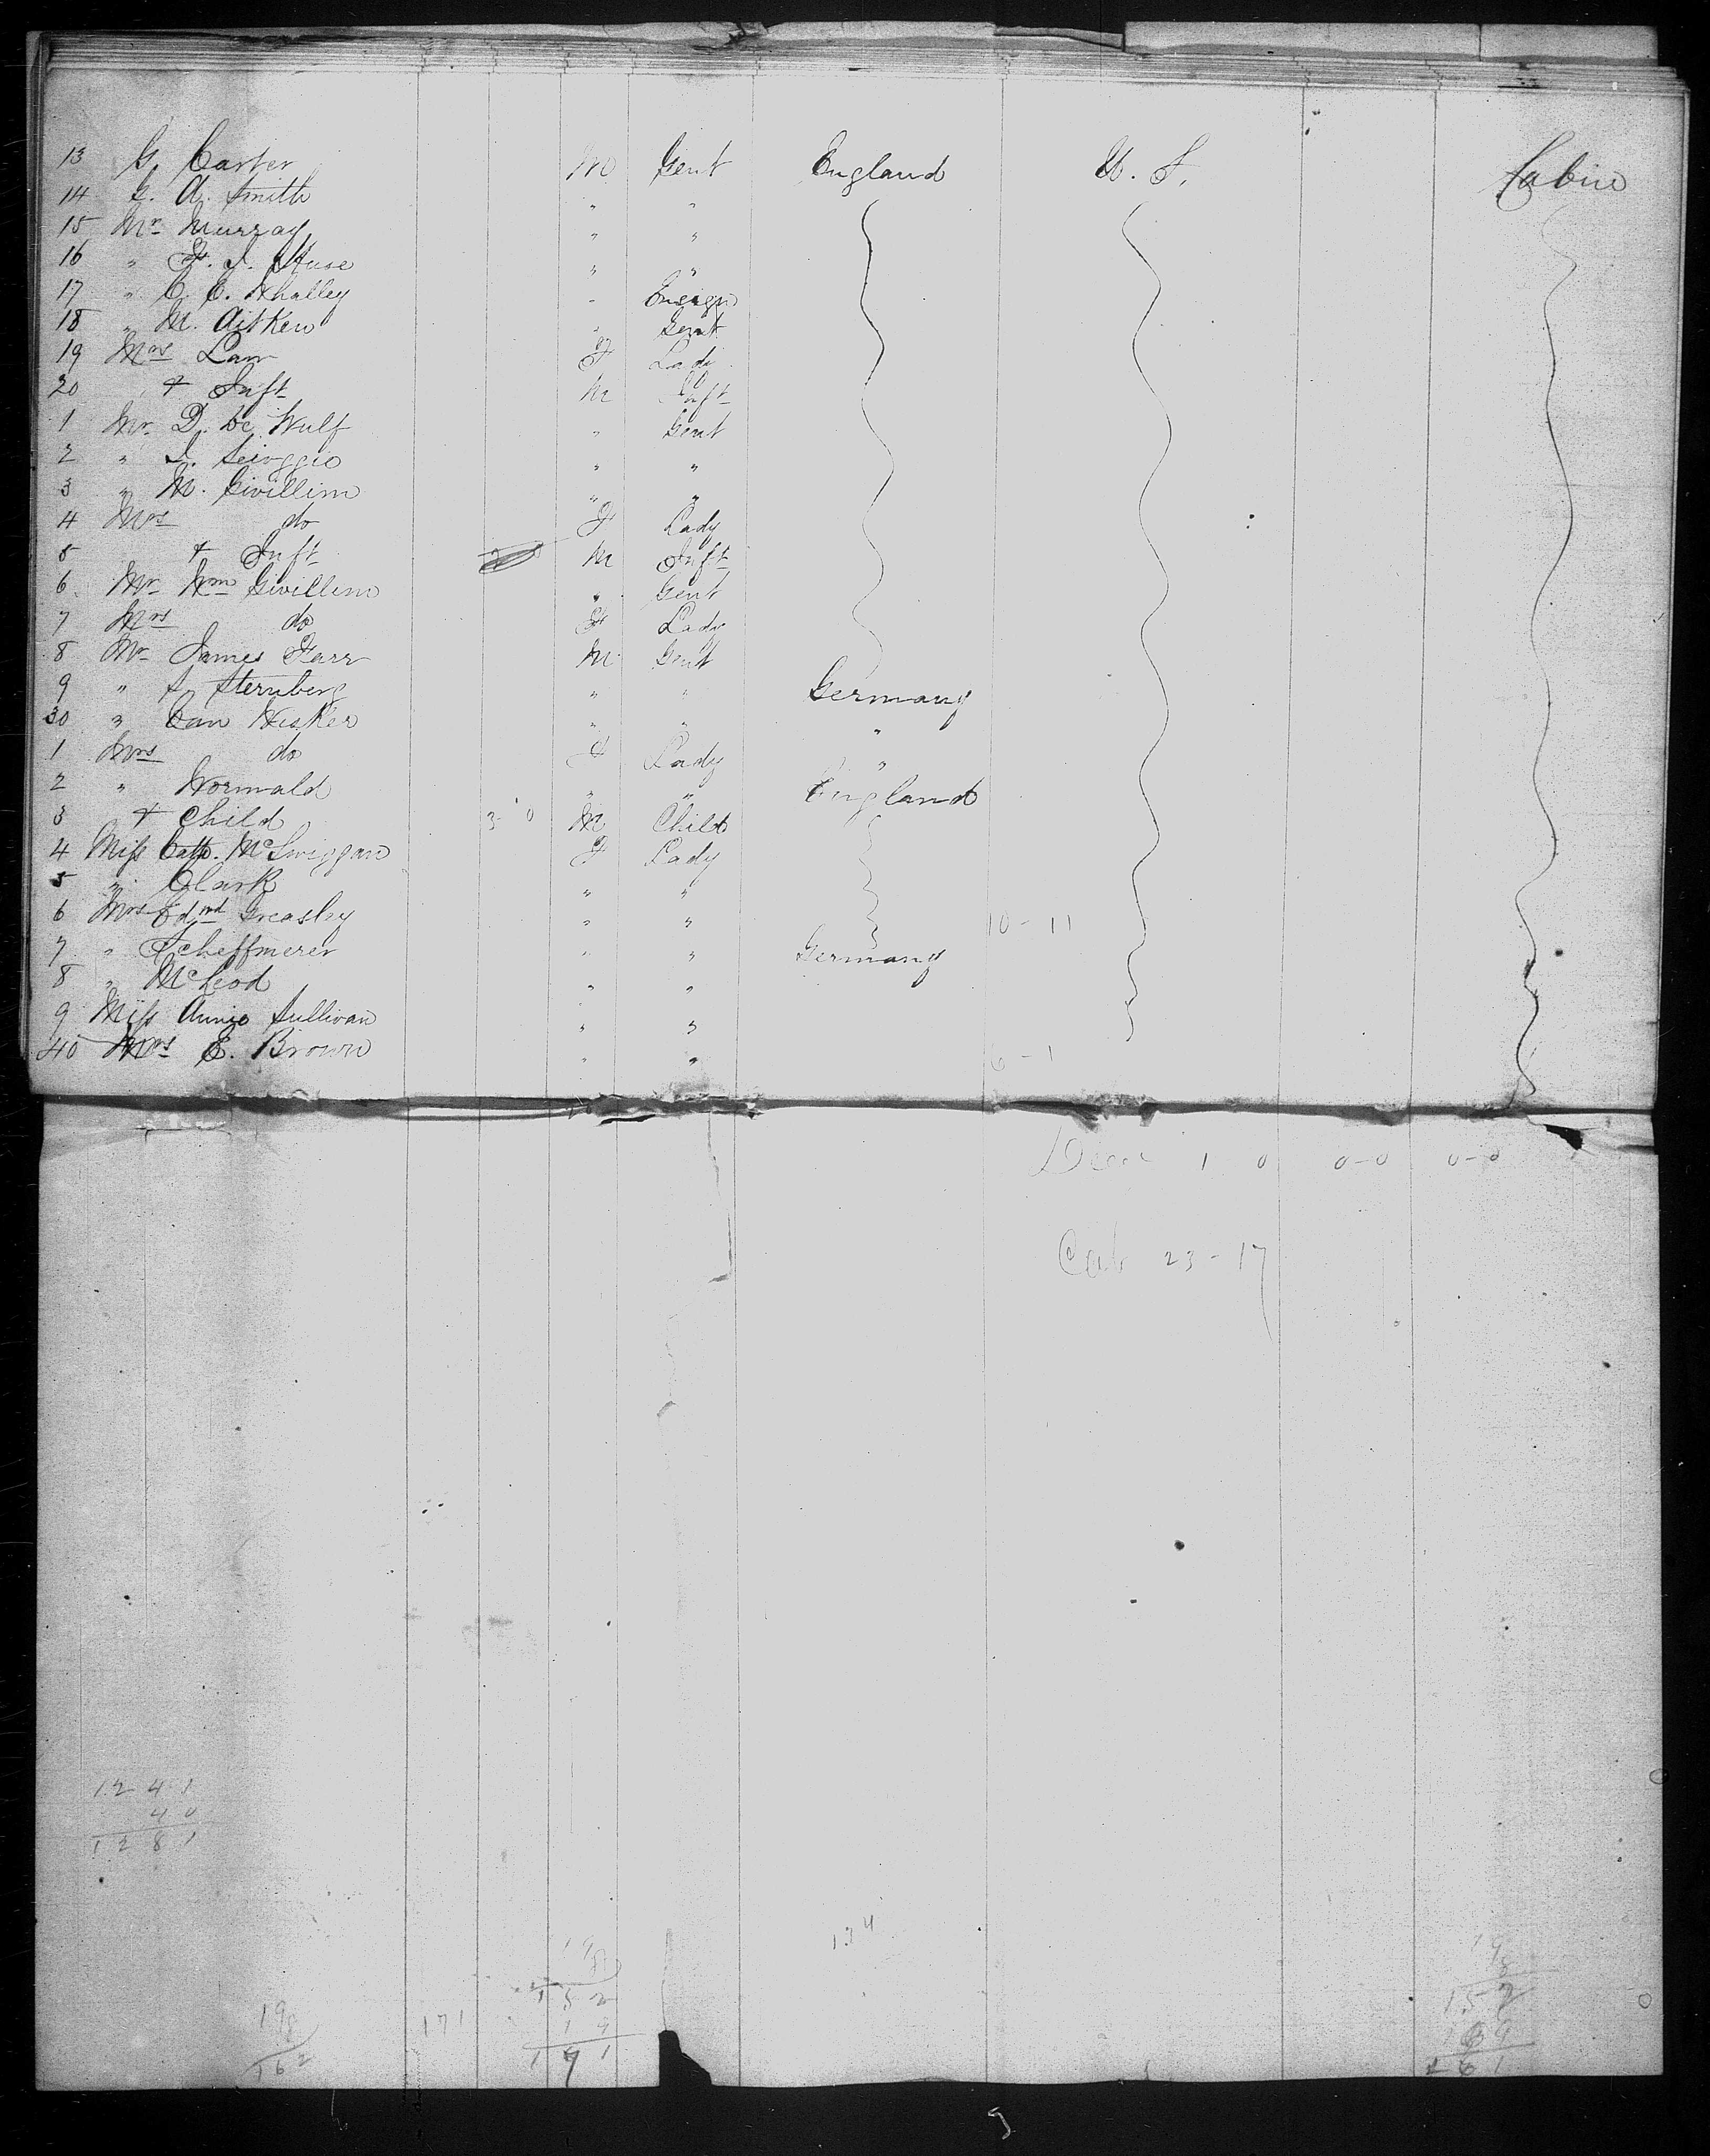 13 G. Carter M Gent England U. S. Cabin
14 G. A. Smith " "
15 Mr Murray " "
16 " F. J. Huse " "
17 " C. C. Whalley " Ensign
18 " M. Aitken " Gent
19 Mrs Law F Lady
20 " + Inft M Inft
1 Mr D. De Wulf " Gent
2 " " "
3 " M. Givillim " "
4 Mrs do F Lady
5 + Inft M Inft
6 Mr Wm Givillim " Gent
7 Mrs do F Lady
8 Mr James Farr M Gent
9 " S. Sternberg " " Germany
30 " Can Wisker " " "
1 Mrs do F Lady "
2 " Wormald " " England
3 + Child 3 - 0 M Child
4 Miss Cath. McSwiggan F Lady
5 " Clark " "
6 Mrs Edmd Greasley " " 10 - 11
7 " Scheffmerer " " Germany
8 " McLeod " "
9 Miss Annie Sullivan " "
40 Mrs E. Brown " " 6 - 1
1 0 0-0 0-0
Cab 23-17
1241
40
1281
134
19
8
152
19
171
198
162
171
19
8
152
109
161